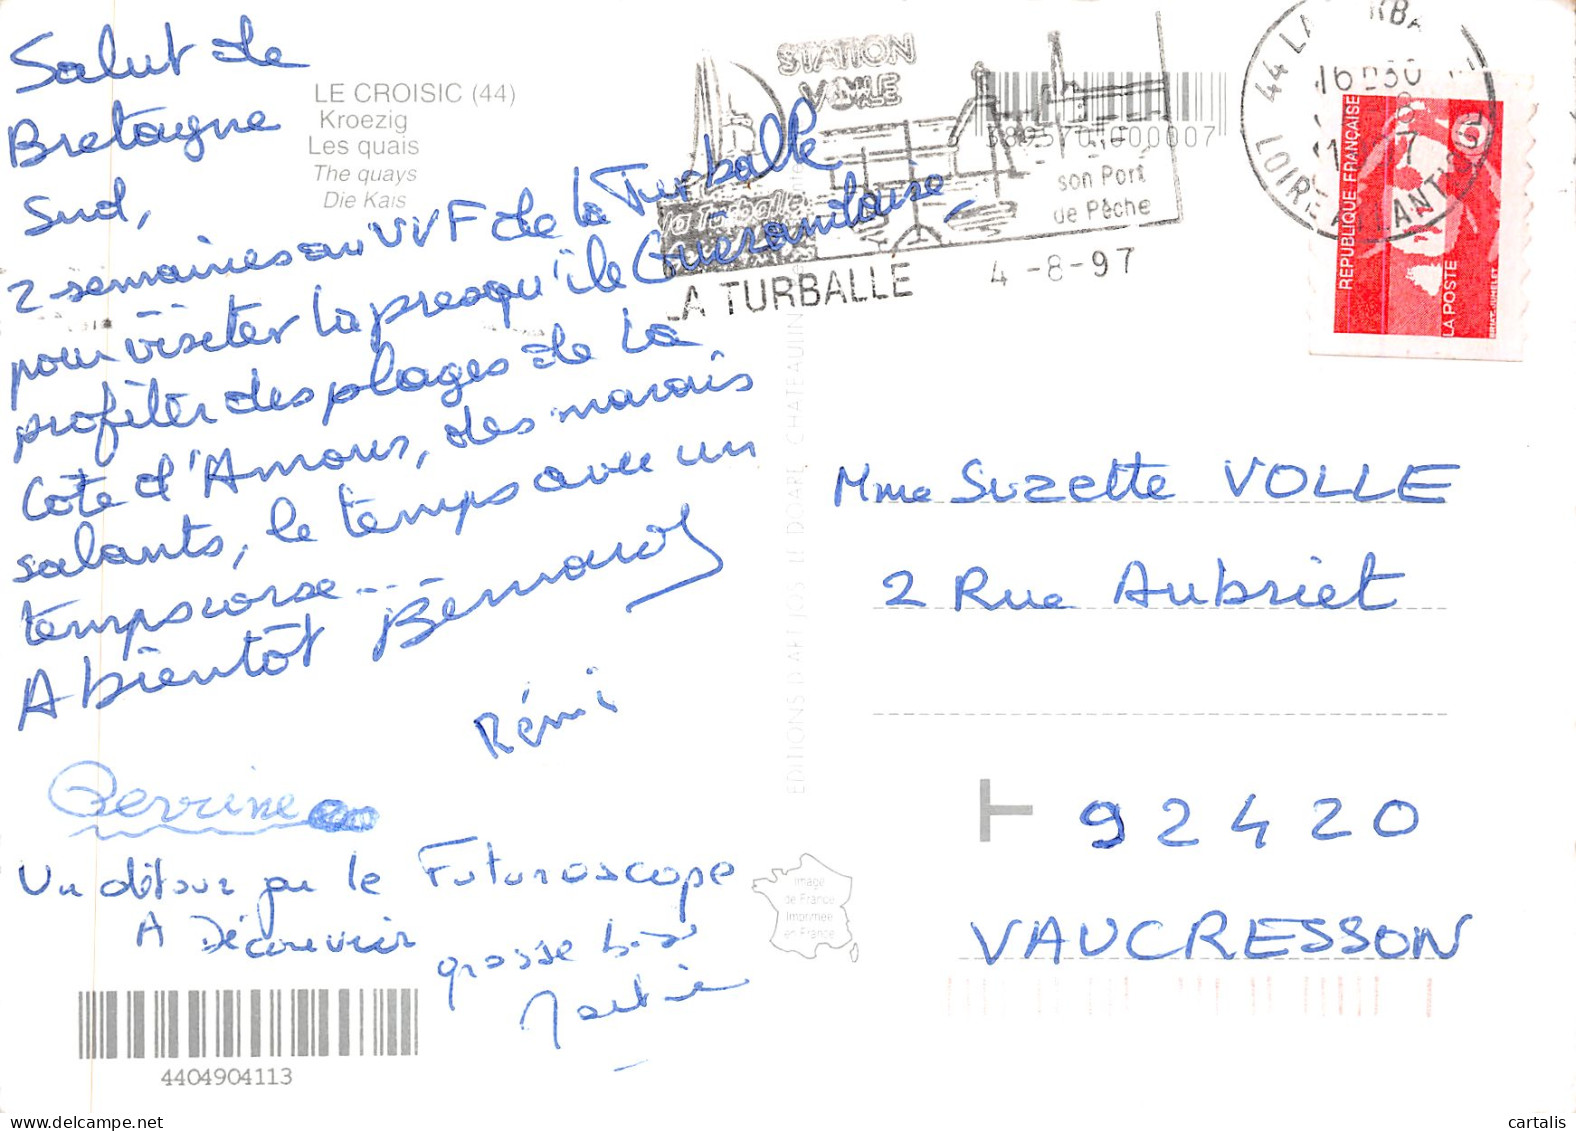 Salut de
Bretagne
Sud,
2 semaines au VVF de la Turballe
pour visiter la presqu'île Guérandaise
profiter des plages de la
Côte d'Amour, des marais
salants, le temps avec un
temps corse...
A bientôt Bernard
Rémi
Perrine
Un détour par le Futuroscope
A Découvrir
grosse bise
LE CROISIC (44)
Kroezig
Les quais
The quays
Die Kais
STATION
VOILE
la Turballe
son Port
de Pêche
LA TURBALLE
4-8-97
44 LA TURBALLE
16H30
LOIRE ATLANTIQUE
RÉPUBLIQUE FRANÇAISE
LA POSTE
EDITIONS D'ART JOS LE DOARE CHATEAULIN
Mme Suzette VOLLE
2 Rue Aubriet
92420
VAUCRESSON
Image
de France
Imprimée
en France
4404904113
cartalis